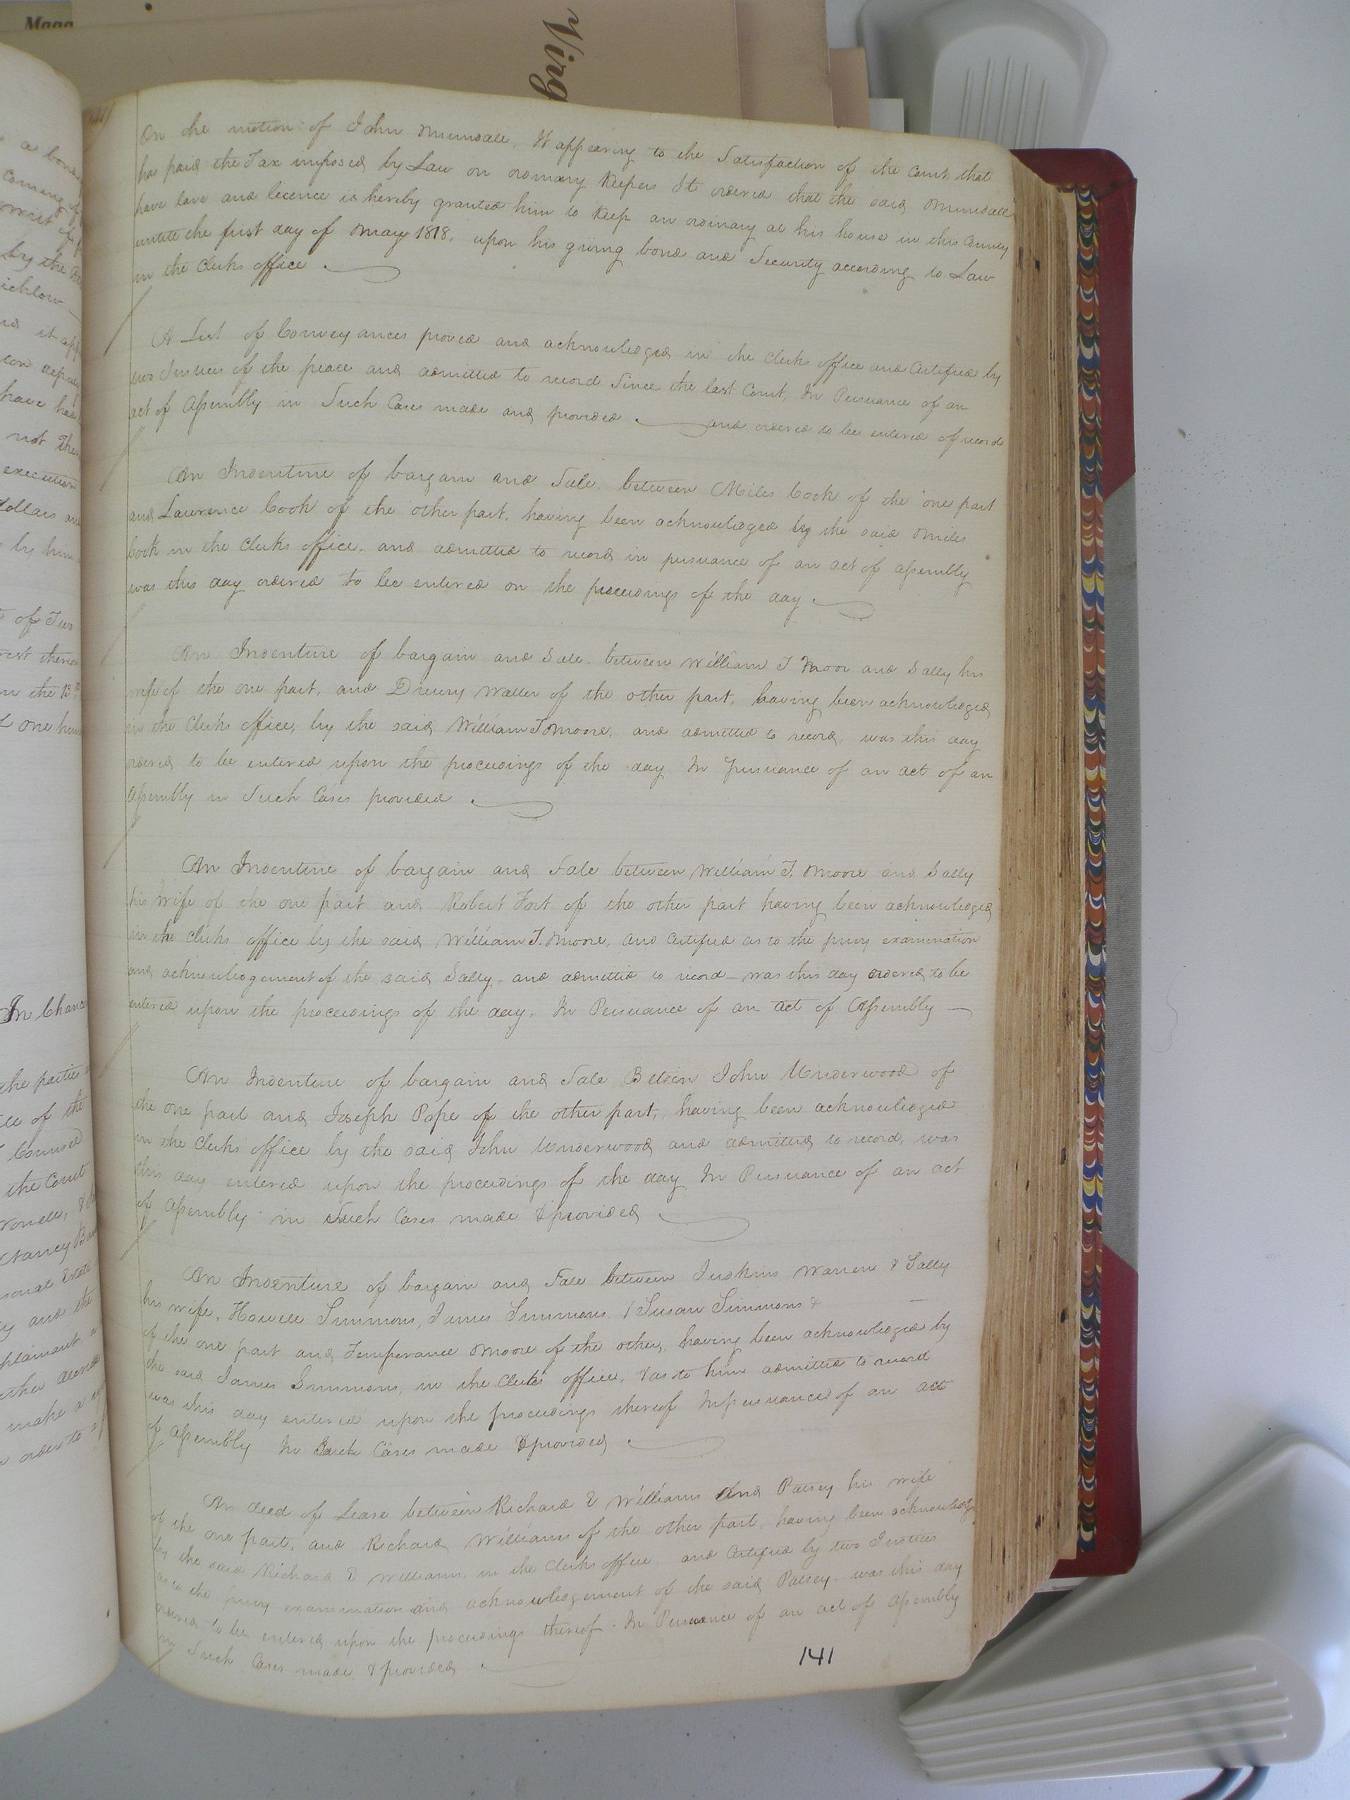 Maga
Virg
On the motion of John Mundall, It appearing to the Satisfaction of the Court that
has paid the Tax imposed by Law on ordinary Keepers It ordered that the said Mundall
have leave and licence is hereby granted him to Keep an ordinary at his house in this County
untill the first day of May 1818, upon his giving bond and Security according to Law
in the Clerks office
A List of Conveyances proved and acknowledged in the Clerks office and Certified by
two Justices of the peace and admitted to record Since the last Court, In Persuance of an
act of Assembly in Such Cases made and provided and ordered to be entered of record
An Indenture of bargain and Sale between Miles Cook of the one part
and Lawrence Cook of the other part, having been acknowledged by the said Miles
Cook in the Clerks office, and admitted to record in persuance of an act of assembly
was this day ordered to be entered on the proceedings of the day
An Indenture of bargain and Sale between William T Moor and Sally his
wife of the one part, and Drewry Waller of the other part, having been acknowledged
in the Clerks office, by the said William T Moore, and admitted to record, was this day
ordered to be entered upon the proceedings of the day In Persuance of an act of an
Assembly in Such Cases provided
An Indenture of bargain and Sale between William T. Moore and Sally
his wife of the one part and Robert Fort of the other part having been acknowledged
in the Clerks office by the said William T. Moore, and Certified as to the privy examination
and acknowledgement of the said Sally, and admitted to record - was this day ordered to be
entered upon the proceedings of the day, In Persuance of an act of Assembly
An Indenture of bargain and Sale Between John Underwood of
the one part and Joseph Pope of the other part, having been acknowledged
in the Clerks office by the said John Underwood and admitted to record, was
this day entered upon the proceedings of the day In Persuance of an act
of Assembly in Such Cases made & provided
An Indenture of bargain and Sale between Judkins Warren & Sally
his wife, Howell Simmons, James Simmons & Susan Simmons &
of the one part and Temperance Moore of the other, having been acknowledged by
the said James Simmons, in the Clerks office, & as to him admitted to record
was this day entered upon the proceedings thereof In persuance of an act
of Assembly In Such Cases made & provided
An deed of Lease between Richard E Williams And Patsey his wife
of the one part, and Richard Williams of the other part, having been acknowledged
by the said Richard E Williams, in the Clerks office, and Certified by two Justices
as to the privy examination and acknowledgement of the said Patsey, was this day
ordered to be entered upon the proceedings thereof. In Persuance of an act of Assembly
in Such Cases made & provided
141